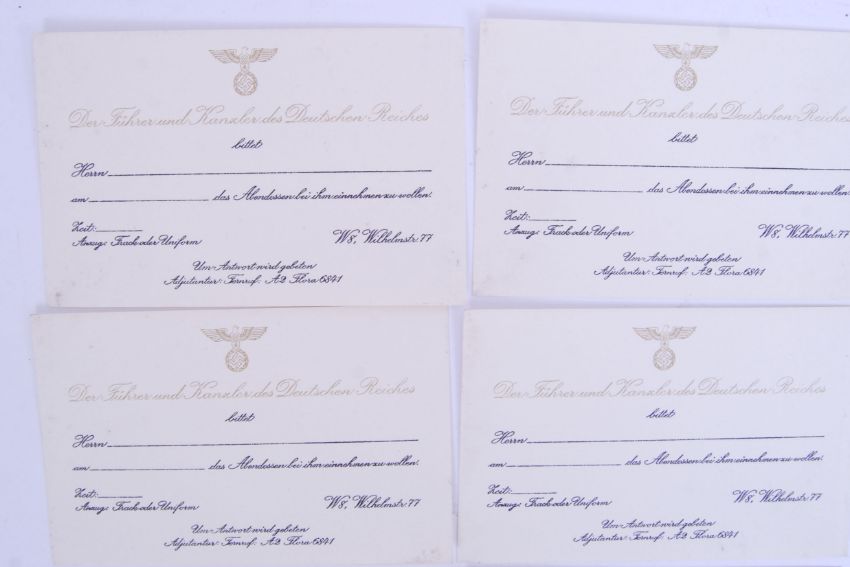 Der Führer und Kanzler des Deutschen Reiches
bittet
Herrn
am das Abendessen bei ihm einnehmen zu wollen.
Zeit:
Anzug: Frack oder Uniform W8, Wilhelmstr. 77
Um Antwort wird gebeten
Adjutantur: Fernruf: A2 Flora 6841
Der Führer und Kanzler des Deutschen Reiches
bittet
Herrn
am das Abendessen bei ihm einnehmen zu wollen.
Zeit:
Anzug: Frack oder Uniform W8, Wilhelmstr. 77
Um Antwort wird gebeten
Adjutantur: Fernruf: A2 Flora 6841
Der Führer und Kanzler des Deutschen Reiches
bittet
Herrn
am das Abendessen bei ihm einnehmen zu wollen.
Zeit:
Anzug: Frack oder Uniform W8, Wilhelmstr. 77
Um Antwort wird gebeten
Adjutantur: Fernruf: A2 Flora 6841
Der Führer und Kanzler des Deutschen Reiches
bittet
Herrn
am das Abendessen bei ihm einnehmen zu wollen.
Zeit:
Anzug: Frack oder Uniform W8, Wilhelmstr. 77
Um Antwort wird gebeten
Adjutantur: Fernruf: A2 Flora 6841